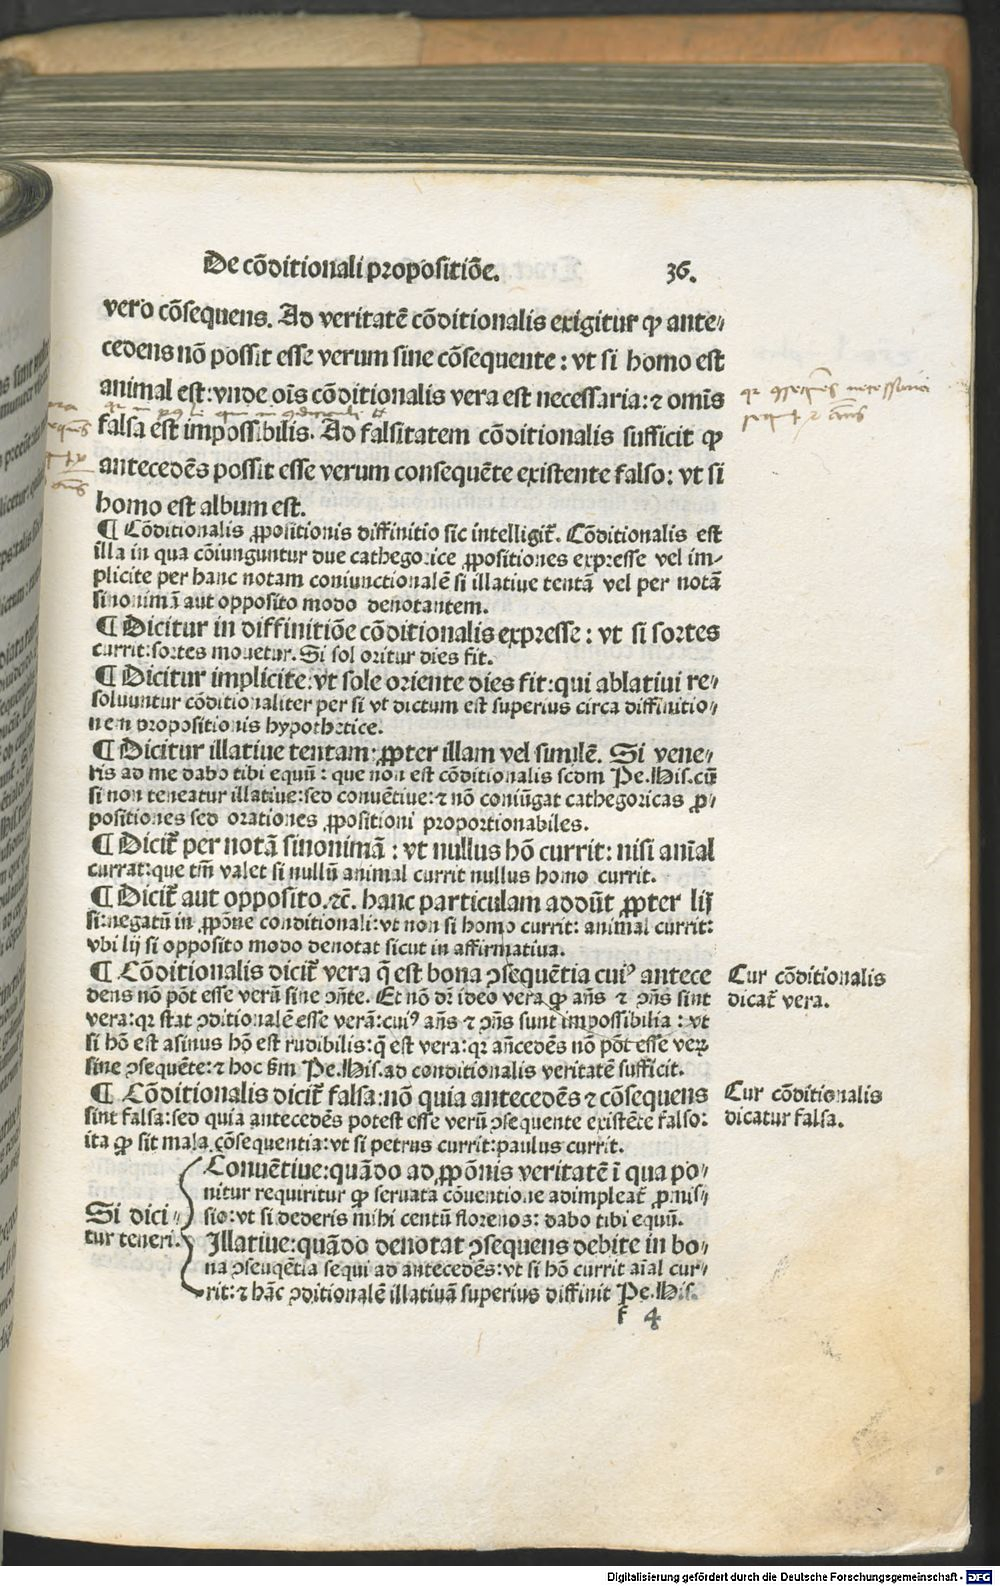 De cõditionali propositiõe. 36.
vero cõsequens. Ad veritatẽ cõditionalis exigitur ꝙ ante⸗
cedens nõ possit esse verum sine cõsequente: vt si homo est
animal est: vnde oĩs cõditionalis vera est necessaria: ⁊ omĩs
falsa est impossibilis. Ad falsitatem cõditionalis sufficit ꝙ
antecedẽs possit esse verum consequẽte existente falso: vt si
homo est album est.
¶ Cõditionalis ꝓpositionis diffinitio sic intelligit᷑. Cõditionalis est
illa in qua cõiunguntur due cathegorice ꝓpositiones expresse vel im⸗
plicite per hanc notam coniunctionalẽ si illatiue tentã vel per notã
sinonimã aut opposito modo denotantem.
¶ Dicitur in diffinitiõe cõditionalis expresse: vt si sortes
currit: sortes mouetur. Si sol oritur dies fit.
¶ Dicitur implicite: vt sole oriente dies fit: qui ablatiui re⸗
soluuntur cõditionaliter per si vt dictum est superius circa diffinitio⸗
nem propositionis hypothetice.
¶ Dicitur illatiue tentam: ꝓpter illam vel similẽ. Si vene⸗
ris ad me dabo tibi equũ: que non est cõditionalis scdm Pe. His. cũ
si non teneatur illatiue: sed conuẽtiue: ⁊ nõ coniũgat cathegoricas ꝓ⸗
positiones sed orationes ꝓpositioni proportionabiles.
¶ Dicit᷑ per notã sinonimã: vt nullus hõ currit: nisi anĩal
currat: que tm̃ valet si nullũ animal currit nullus homo currit.
¶ Dicit᷑ aut opposito. ⁊c̃. hanc particulam addũt ꝓpter lij
si: negatũ in ꝓpõne conditionali: vt non si homo currit: animal currit:
vbi lij si opposito modo denotat sicut in affirmatiua.
¶ Cõditionalis dicit᷑ vera q̃ est bona ↄsequẽtia cuiꝰ antece
dens nõ põt esse verũ sine ↄñte. Et nõ dr̃ ideo vera ꝙ añs ⁊ ↄñs sint
vera: qr stat ↄditionalẽ esse verã: cuiꝰ añs ⁊ ↄñs sunt impossibilia: vt
si hõ est asinus hõ est rudibilis: q̃ est vera: qr añcedẽs nõ põt esse veꝝ
sine ↄsequẽte: ⁊ hoc ẜm Pe. His. ad conditionalis veritatẽ sufficit.
Cur cõditionalis
dicat᷑ vera.
¶ Cõditionalis dicit᷑ falsa: nõ quia antecedẽs ⁊ cõsequens
sint falsa: sed quia antecedẽs potest esse verũ ↄsequente existẽte falso:
ita ꝙ sit mala cõsequentia: vt si petrus currit: paulus currit.
Cur cõditionalis
dicatur falsa.
Si dici⸗
tur teneri.
Conuẽtiue: quãdo ad ꝓpõnis veritatẽ ĩ qua po⸗
nitur requiritur ꝙ seruata cõuentione adimpleat᷑ ꝓmis⸗
sio: vt si dederis mihi centũ florenos: dabo tibi equũ.
Illatiue: quãdo denotat ↄsequens debite in bo⸗
na ↄseuqẽtia sequi ad antecedẽs: vt si hõ currit aĩal cur⸗
rit: ⁊ hãc ↄditionalẽ illatiuã superius diffinit Pe. His.
f 4
Digitalisierung gefördert durch die Deutsche Forschungsgemeinschaft - DFG